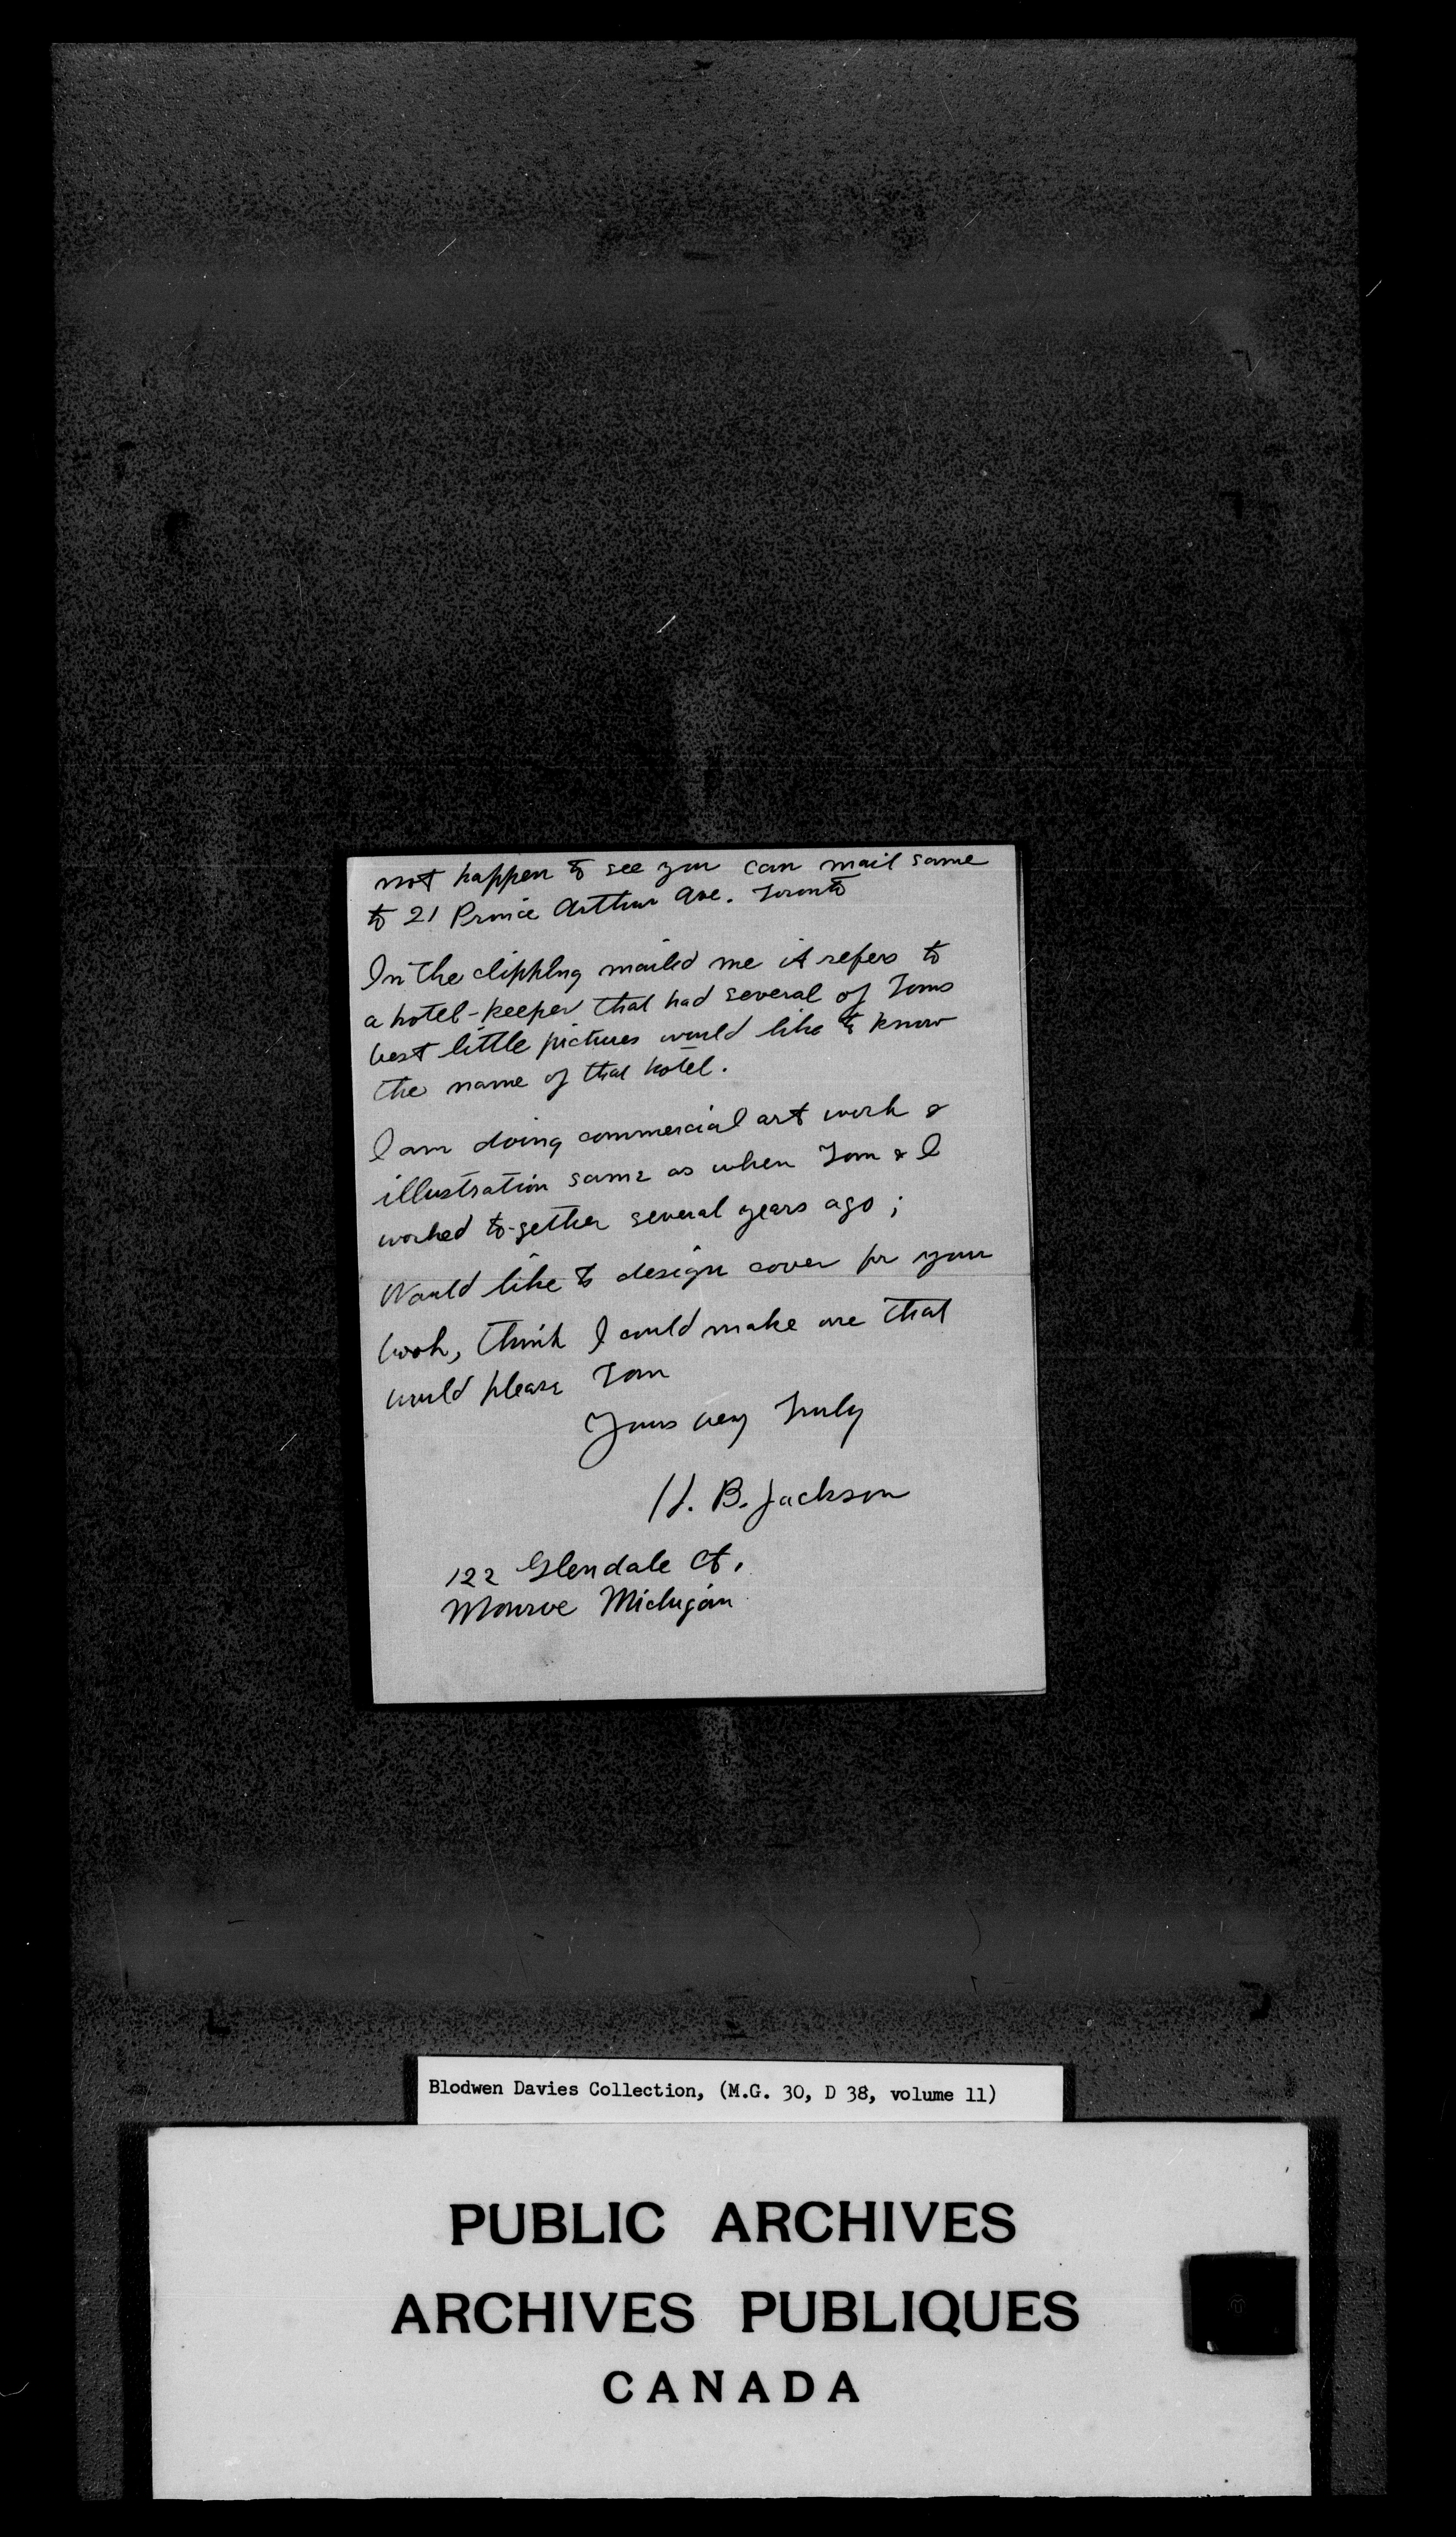 not happen to see you can mail same
to 21 Prince Arthur Ave. Toronto
In the clipping mailed me it refers to
a hotel-keeper that had several of Toms
best little pictures would like to know
the name of that hotel.
I am doing commercial art work &
illustration same as when Tom & I
worked to-gether several years ago;
Would like to design cover for your
book, think I could make one that
would please Tom
Yours very Truly
H. B. Jackson
122 Glendale Ct,
Monroe Michigan
Blodwen Davies Collection, (M.G. 30, D 38, volume 11)
PUBLIC ARCHIVES
ARCHIVES PUBLIQUES
CANADA